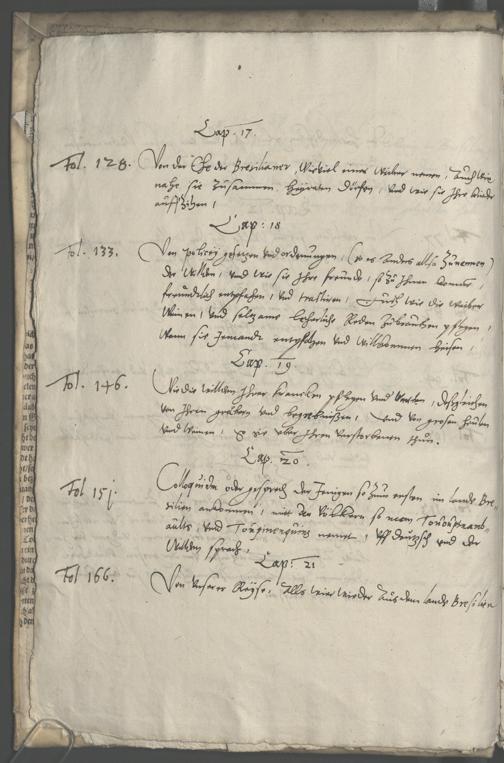 Cap. 17.
Fol. 128. Von der Ehe der Bresilianer, Wieviel einer Weiber nemen, Auch wie
nahe sie Zusammen Heyraten dörfen, und wie sie Ihre kinder
aufziehen,
Cap: 18
Fol. 133. Von policey gesetzen und ordnungen, (so es anders also Zunennen)
der Wilden, und wie sie Ihre freunde, so Zu Ihnen kommen,
freundtlich entpfahen, und tractiren, Auch wie die Weiber
Weinen, und selzame lecherliche Reden Zubrauchen pflegen,
Wann sie Jemandt entpfahen und Willkommen heissen,
Cap. 19
Fol. 146. Wie die wilden Ihrer krancken pflegen und Warten, desgleichen
von Ihren grebern und begrebnißen, und von grosen heulen
und Weinen, so sie uber Ihren verstorbenen thun.
Cap. 20.
Fol 151. Colloquium oder gesprech der Jenigen so Zum ersten im lande Bre-
silien ankommen, mit den Völckern so man Tououpinam-
aults, und Toupinenquins nennet, uff deutzsch und der
Wilden sprach,
Cap: 21
Fol 166. Von unserer Reyse, Alls wir wieder Aus dem lande Bresilien